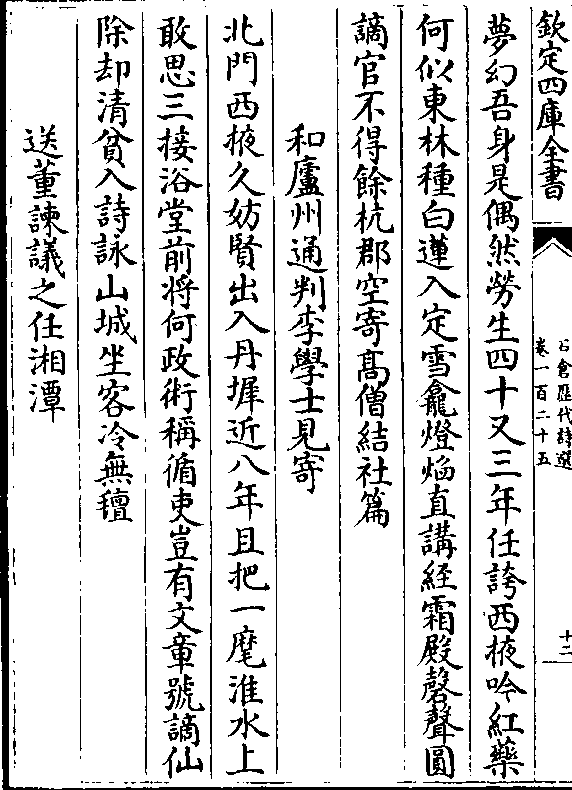 欽定四庫全書
石倉歷代詩選
卷一百二十五
十二
夢幻吾身是偶然勞生四十又三年任誇西掖吟紅藥
何似東林種白蓮入定雪龕燈焰直講經霜殿磬聲圓
謫官不得餘杭郡空寄髙僧結社篇
和廬州通判李學士見寄
北門西掖久妨賢出入丹墀近八年且把一麾淮水上
敢思三接浴堂前将何政術稱循吏豈有文章號謫仙
除却清貧入詩詠山城坐客冷無氊
送董諫議之任湘潭